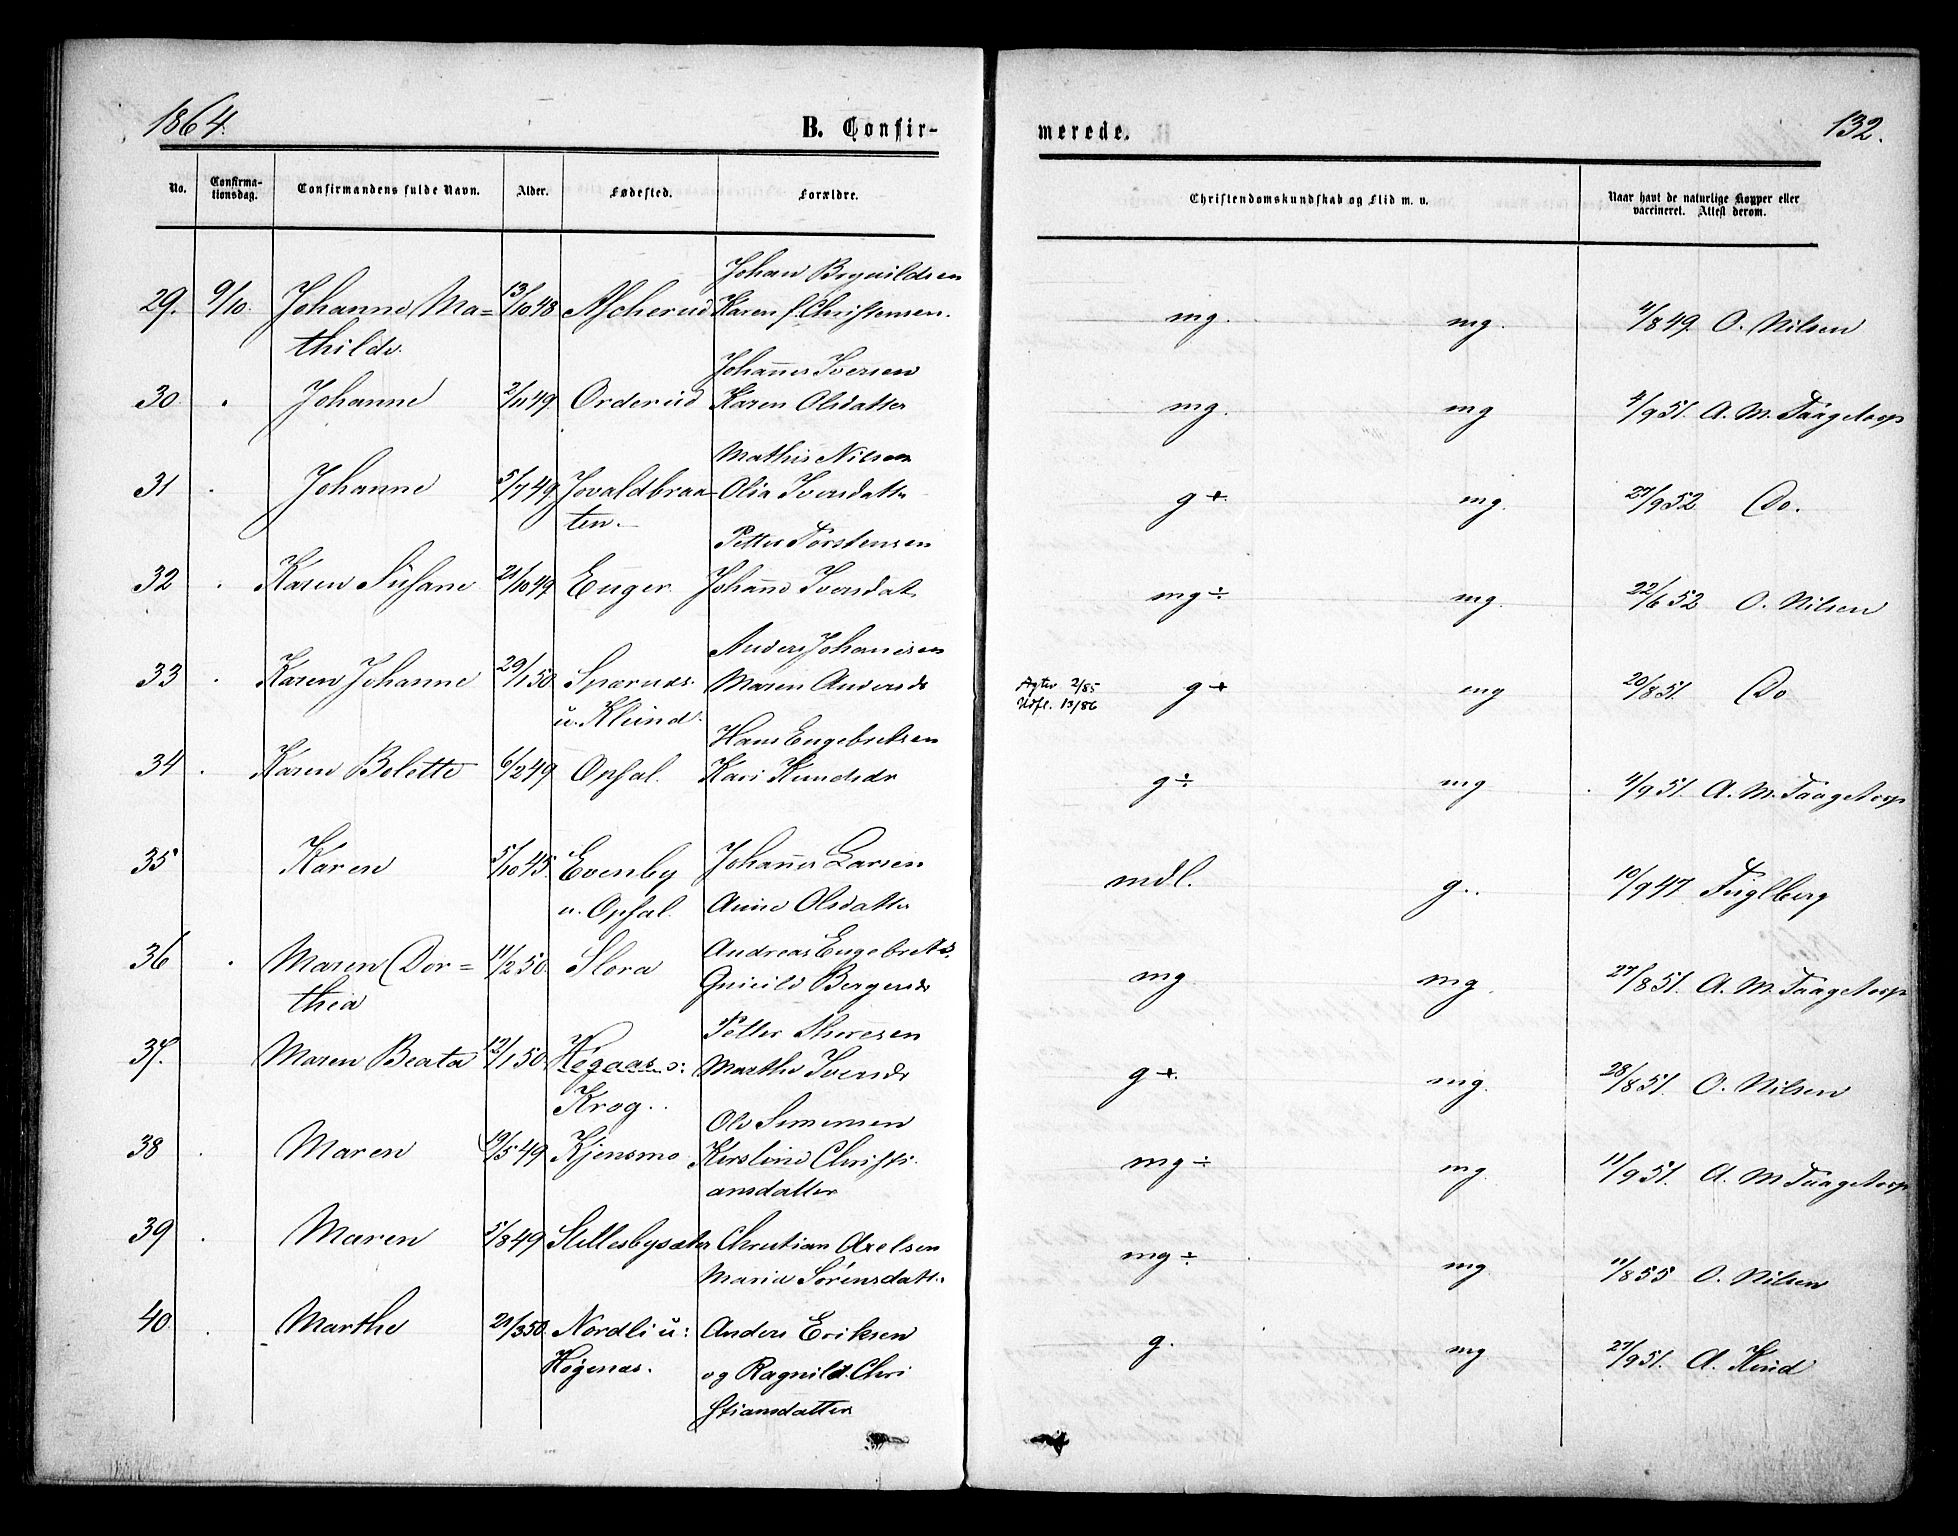 1864.
B. Confir-
merede.
132.
No.
Confirma-
tionsdag.
Confirmandens fulde Navn.
Alder.
Fødested.
Forældre.
Christendomskundskab og Flid m. v.
Naar havt de naturlige Kopper eller
vaccineret. Attest derom.
Johan
29. 9/10. Johanne Ma= 13/10 48 Ascherud Karen f. Christensen. mg. mg. 4/8 49 O. Nilsen
thilde.
Johannes Iversen
30 . Johanne 2/11 49 Orderud Karen Olsdatter mg. mg 4/9 51. A. M. Taagetorp
Mathis Nilsen
31 . Johanne 5/7 49 Jovaldbraa- Olia Iversdatter g+. mg. 27/9 52 Do.
ten.
Petter Torstensen
32 . Karen Susane 21/10 49 Enger Johanne Iversdat. mg÷ mg. 22/6 52 O. Nilsen
Anders Johannesen
33 . Karen Johanne 29/1 50. Maren Andersdr Agter 2/85 g+ mg 20/8 51. Do
u. Klund. Udfl. 13/86
Hans Engebretsen
34 . Karen Bolette 6/2 49 Opsal. Kari Knudsdr g÷ mg 4/9 51. A. M. Taagetorp
35 Karen 5/10 45. Evenby Johannes Larsen mdl. g.. 10/9 47 Fuglberg
u. Opsal. Anne Olsdatter
36 . Maren Dor= 11/2 50. Slora Andreas Engebrets. mg mg. 27/8 51. A. M. Taagetorp
thea Gunild Bergersdr
Petter
37. Maren Beata 12/1 50. Høgaas u: Marthe Iversdr g+. mg. 28/8 51. O. Nilsen
Krog..
Ole Simensen
38 . Maren 19/5 49 Kjensmo Kerstine Christi- mg÷ mg. 11/9 51. A. M Taagetorp
ansdatter
39 . Maren 5/8 49 Stillesbysæter Christian Axelsen mg÷ mg 11/8 55 O. Nilsen
Maria Sørensdatter
40. . Marthe 21/3 50. Nordli u: Anders Eriksen g. mg 27/9 51. A.
og Ragnild Chri
stiansdatter